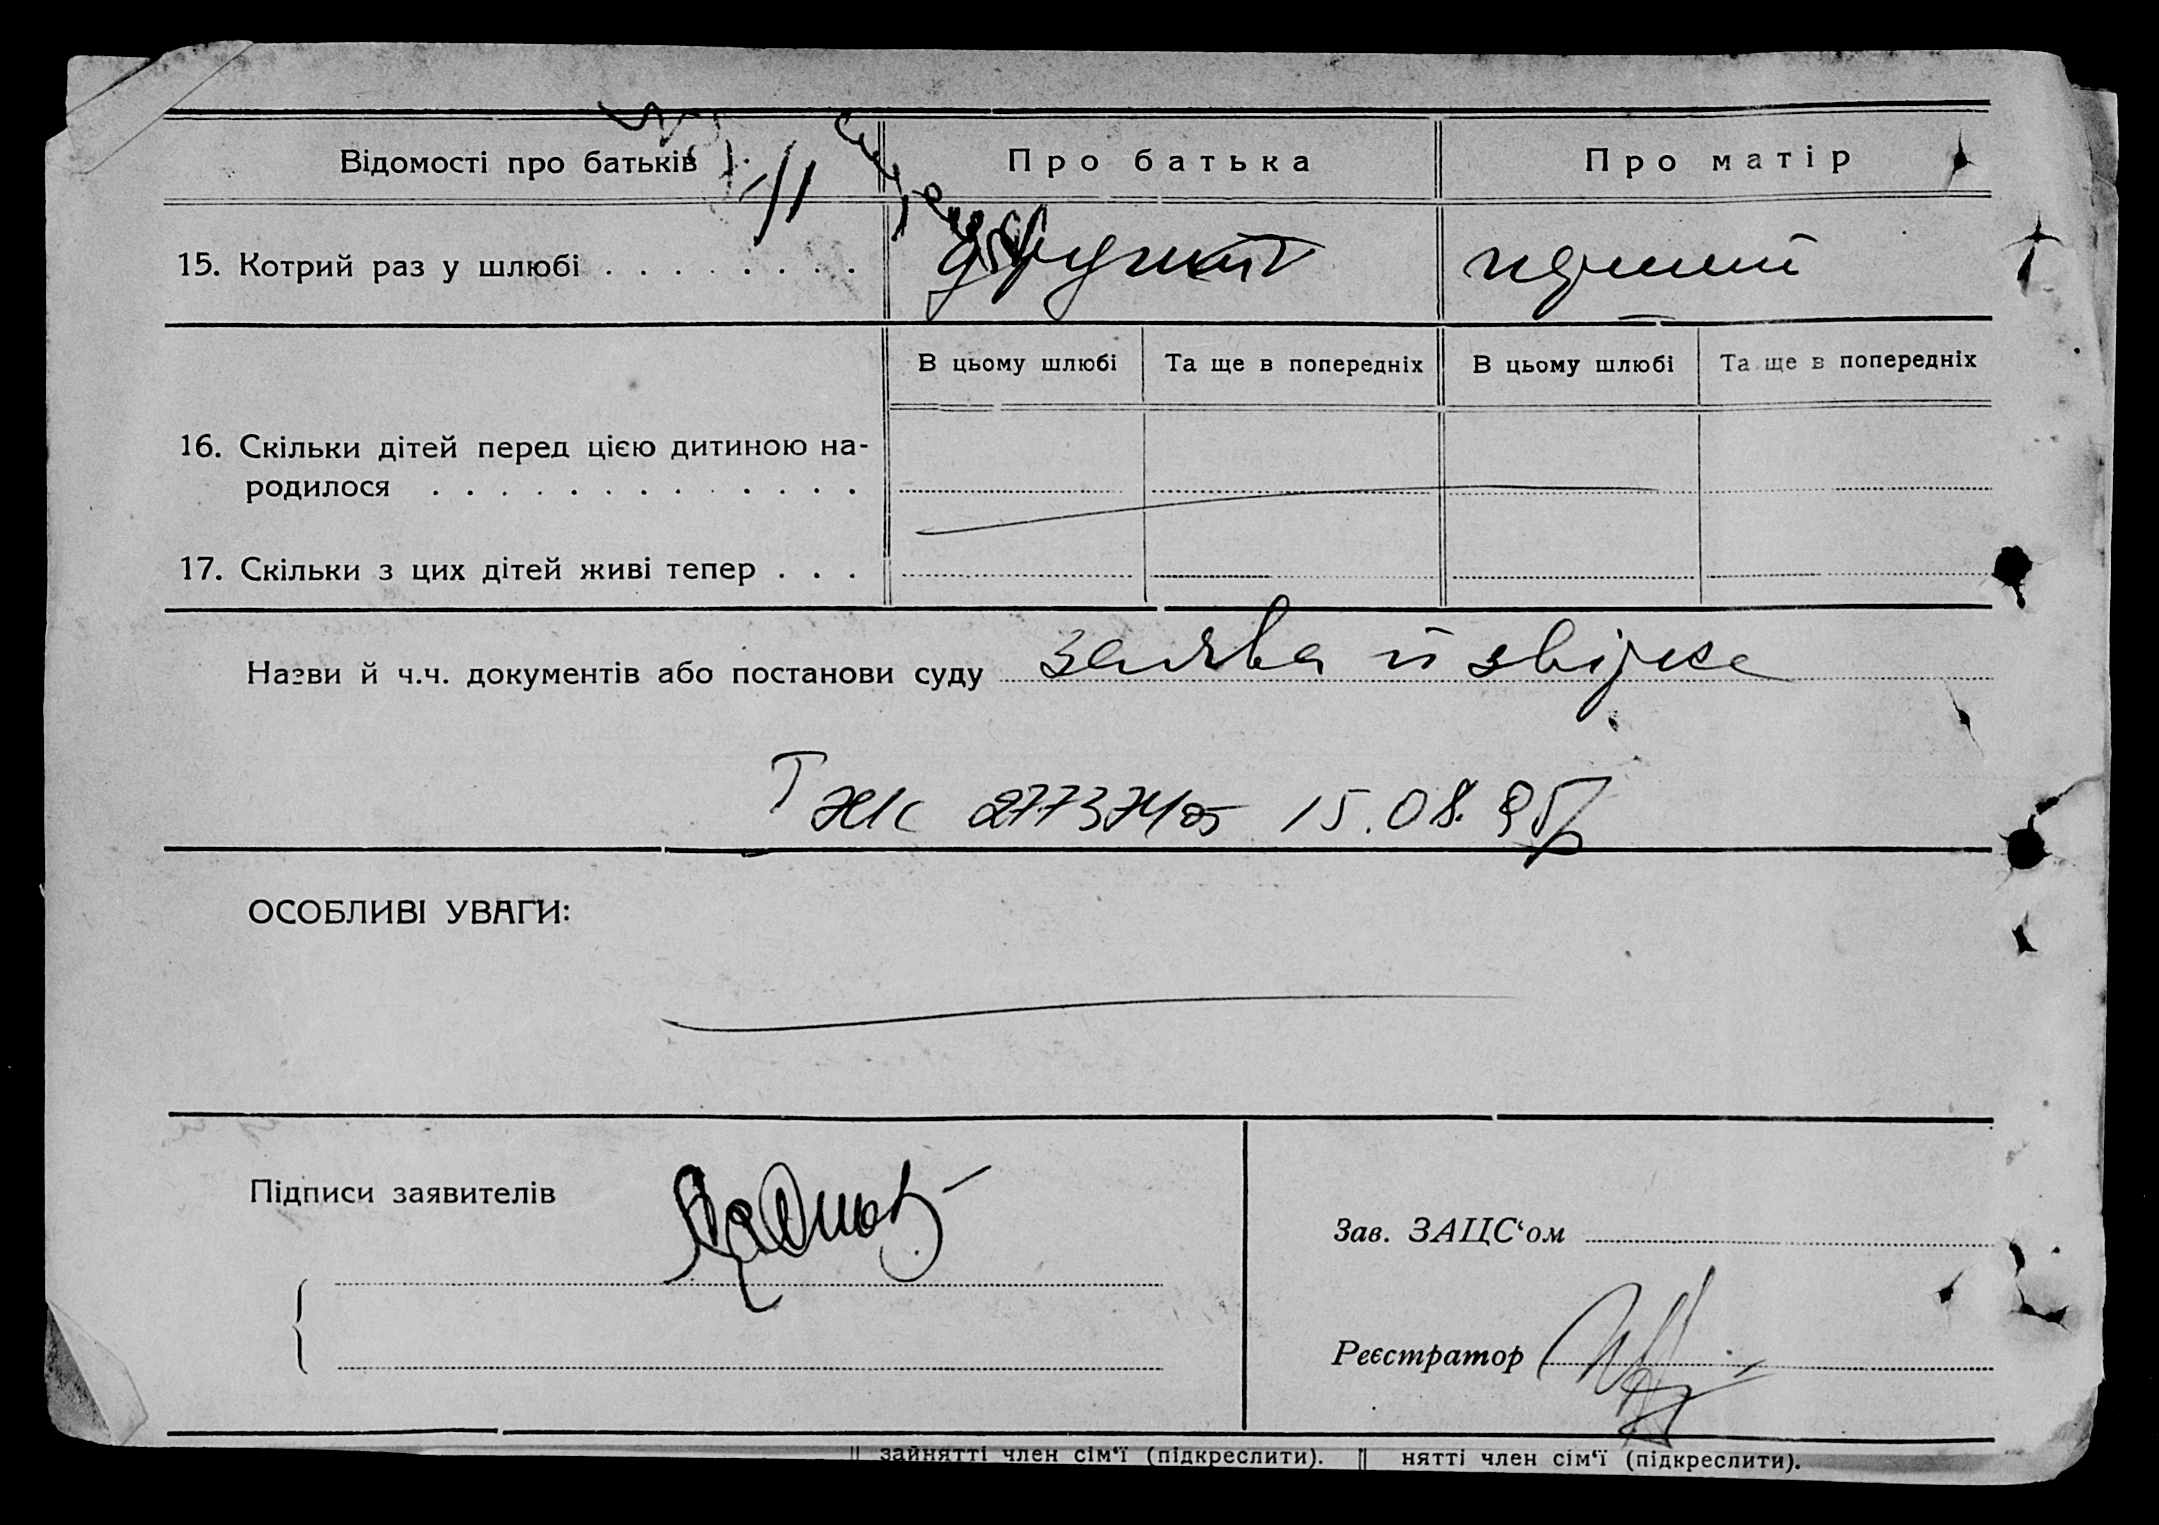 Відомості про батьків
Про батька
Про матір
15. Котрий раз у шлюбі . . . . . . . .
другий
перший
В цьому шлюбі
Та ще в попередніх
В цьому шлюбі
Та ще в попередніх
16. Скільки дітей перед цією дитиною на-
родилося . . . . . . . . . . . . .
17. Скільки з цих дітей живі тепер . . .
Назви й ч.ч. документів або постанови суду заява й звідка
15.08.95р
ОСОБЛИВІ УВАГИ:
Підписи заявителів
Зав. ЗАЦС‘ом
Реєстратор
зайнятті член сім‘ї (підкреслити).
нятті член сім‘ї (підкреслити).